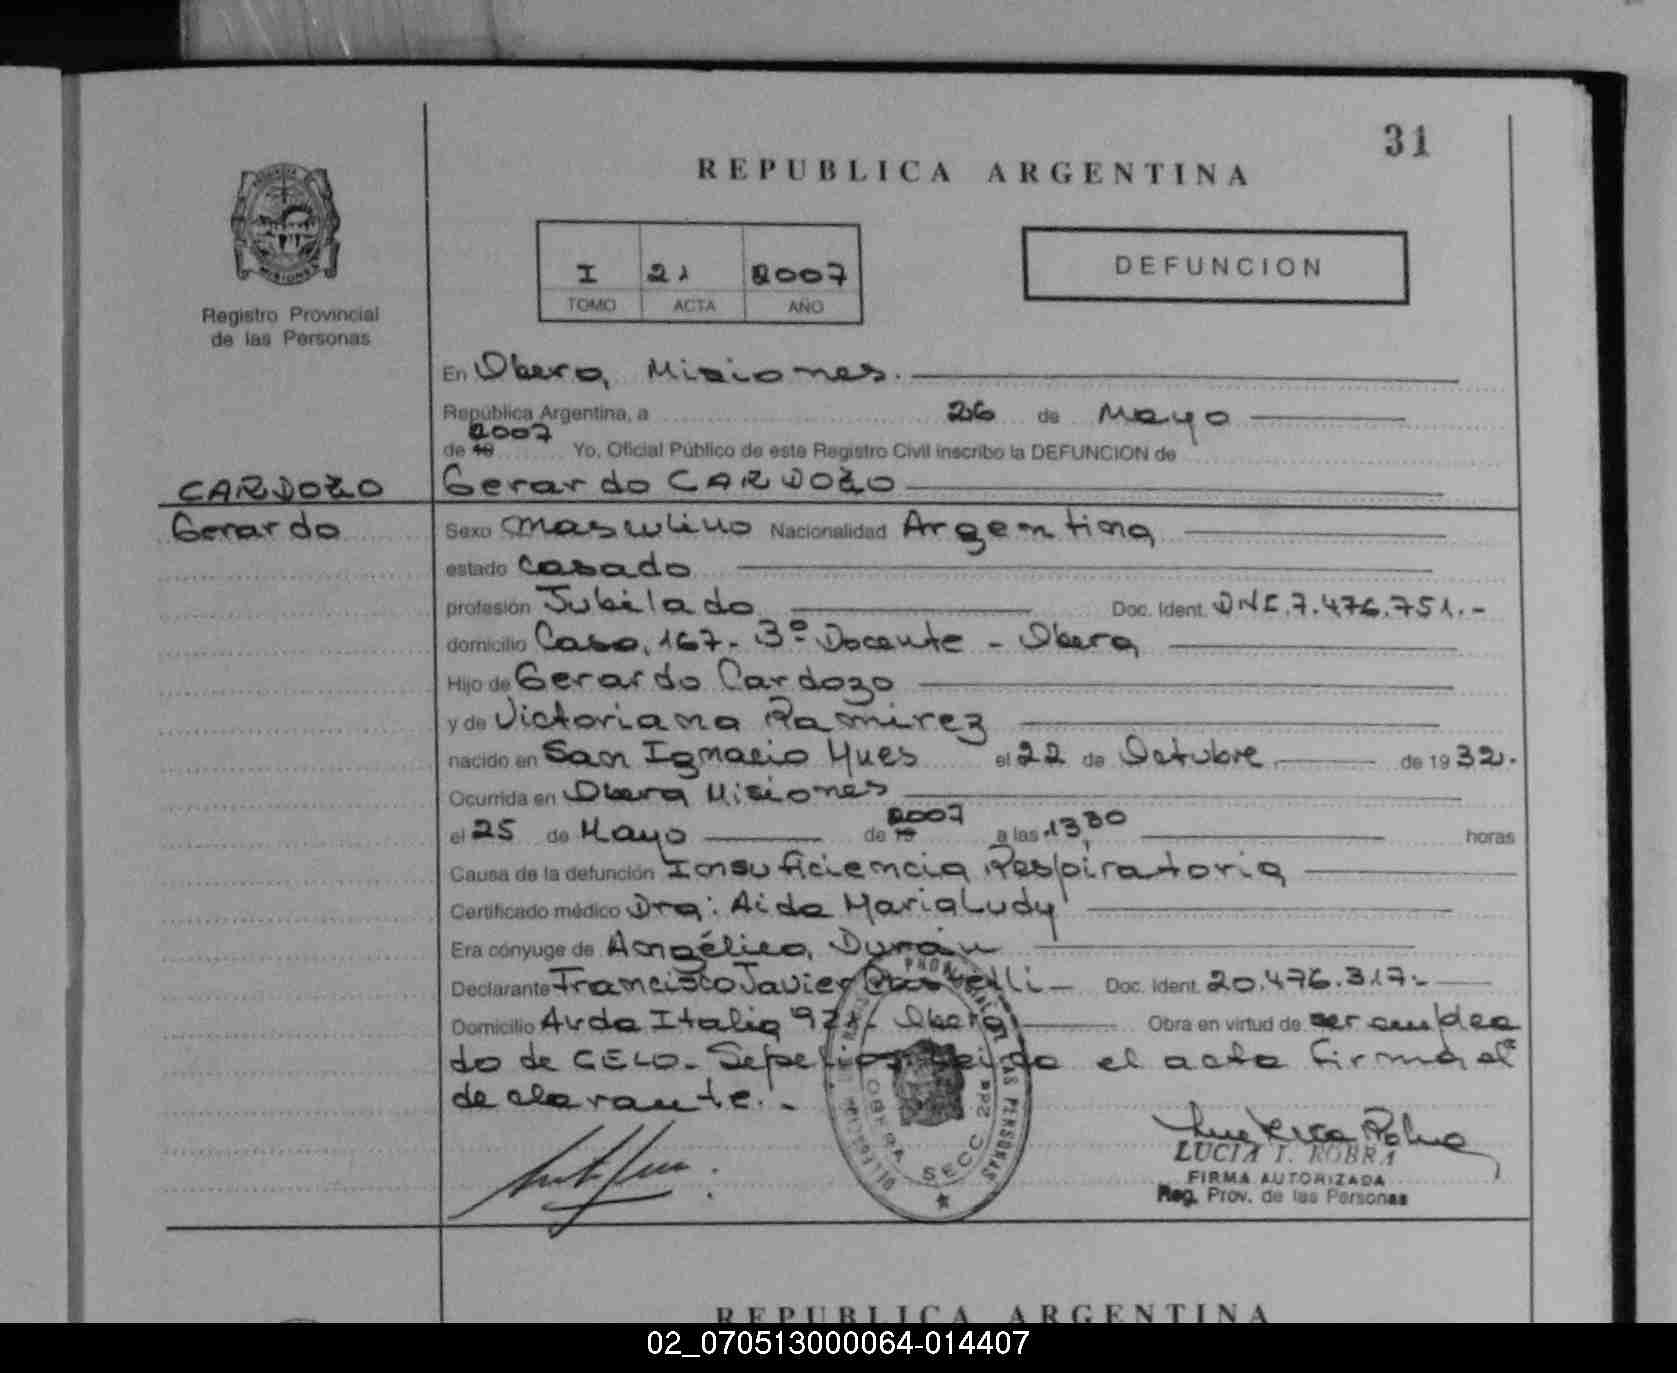 31
REPUBLICA ARGENTINA
MISIONES
Registro Provincial
de las Personas
I 21 2007
TOMO ACTA AÑO
DEFUNCION
En Obera, Misiones.
República Argentina, a 26 de Mayo
2007
de 19 Yo, Oficial Público de este Registro Civil inscribo la DEFUNCION de
CARDOZO
Gerardo
Gerardo CARDOZO
Sexo Masculino Nacionalidad Argentina
estado Casado
profesión Jubilado Doc. Ident. DNI.7.476.751.-
domicilio Casa, 167- 3º Docente - Obera
Hijo de Gerardo Cardozo
y de Victoriana Ramirez
nacido en San Ignacio Mnes el 22 de Octubre de 1932.
Ocurrida en Obera Misiones
el 25 de Mayo de 19 2007 a las 13,30 horas
Causa de la defunción Insuficiencia Respiratoria
Certificado médico Dra: Aida Maria Ludy
Era cónyuge de Angélica Durán
Declarante Francisco Javier Doc. Ident. 20.476.317.-
Domicilio Avda Italia Obera Obra en virtud de ser emplea
do de CELO- leida el acta firma el
declarante.-
OBERA SECC 2da
LUCIA I. ROBRA
FIRMA AUTORIZADA
Reg. Prov. de las Personas
REPUBLICA ARGENTINA
02_070513000064-014407